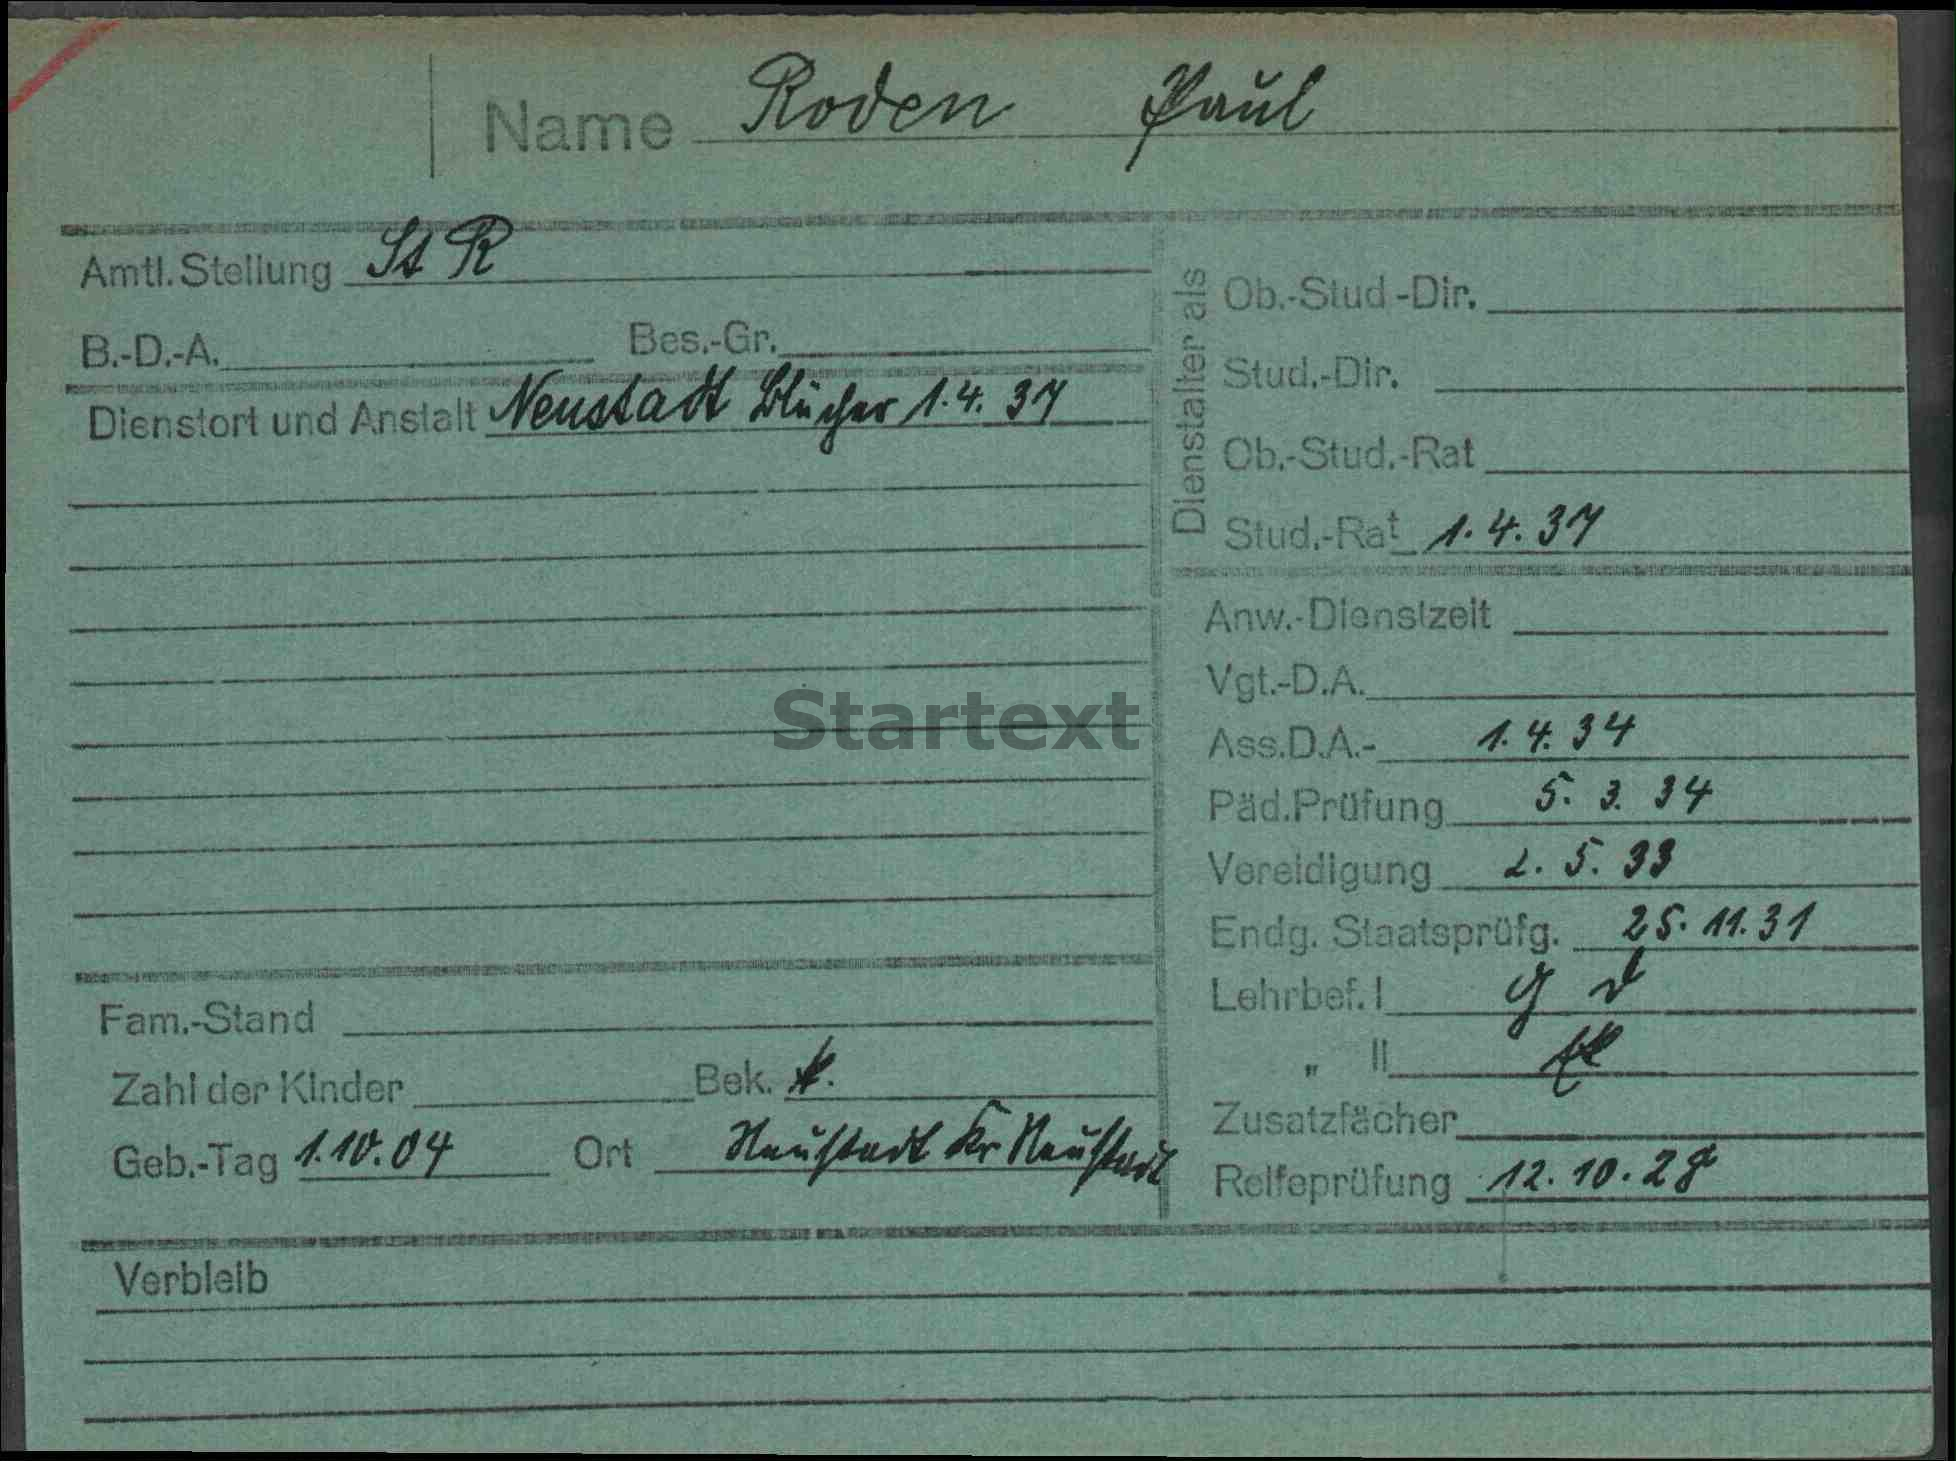 Name Roden Paul
Amtl. Stellung St R
B.-D.-A. Bes.-Gr.
Dienstort und Anstalt Neustadt Blücher 1.4.37
Fam.-Stand
Zahl der Kinder Bek. k.
Geb.-Tag 1.10.04 Ort Neustadt Kr Neustadt
Dienstalter als
Ob.-Stud-Dir.
Stud.-Dir.
Ob.-Stud.-Rat
Stud.-Rat 1.4.37
Anw.-Dienstzeit
Vgt.-D.A.
Ass.D.A.- 1.4.34
Päd.Prüfung 5.3.34
Vereidigung 2.5.33
Endg. Staatsprüfg. 25.11.31
Lehrbef. I g d
„ II
Zusatzfächer
Reifeprüfung 12.10.28
Verbleib
Startext